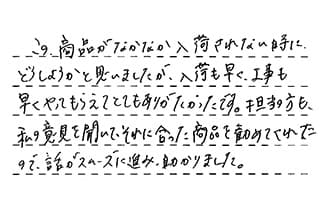 今、商品がなかなか入荷されない時に、
どうしようかと思いましたが、入荷も早く、工事も
早くやってもらえてとてもありがたかったです。担当の方も、
私の意見を聞いて、それに合った商品を勧めてくれた
ので、話がスムーズに進み、助かりました。